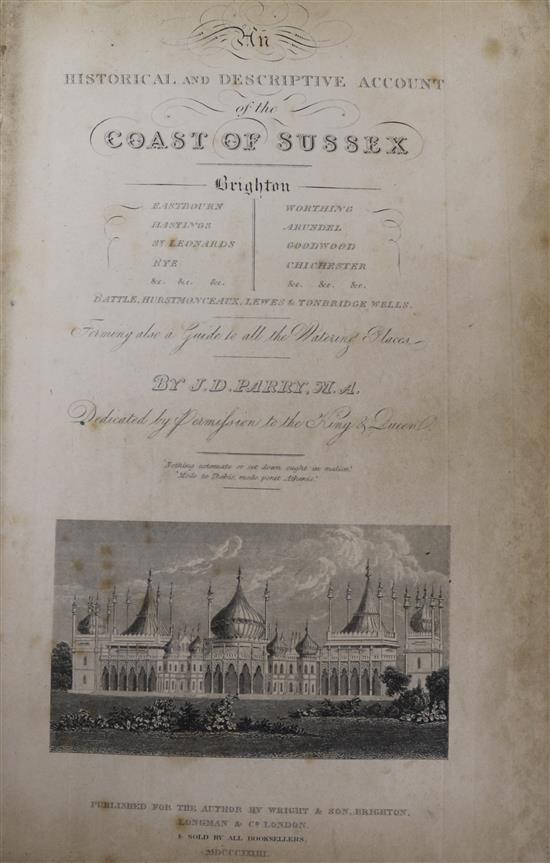 An
HISTORICAL AND DESCRIPTIVE ACCOUNT
of the
COAST OF SUSSEX
Brighton
EASTBOURN
HASTINGS
ST LEONARDS
RYE
&c. &c. &c.
WORTHING
ARUNDEL
GOODWOOD
CHICHESTER
&c. &c. &c.
BATTLE, HURSTMONCEAUX, LEWES & TONBRIDGE WELLS.
Forming also a Guide to all the Watering Places
BY J. D. PARRY, M. A.
Dedicated by Permission to the King & Queen.
"Nothing extenuate or set down ought in malice."
"Modo to Thebis, modo ponit Athenis."
PUBLISHED FOR THE AUTHOR BY WRIGHT & SON, BRIGHTON,
LONGMAN & Co. LONDON.
& SOLD BY ALL BOOKSELLERS.